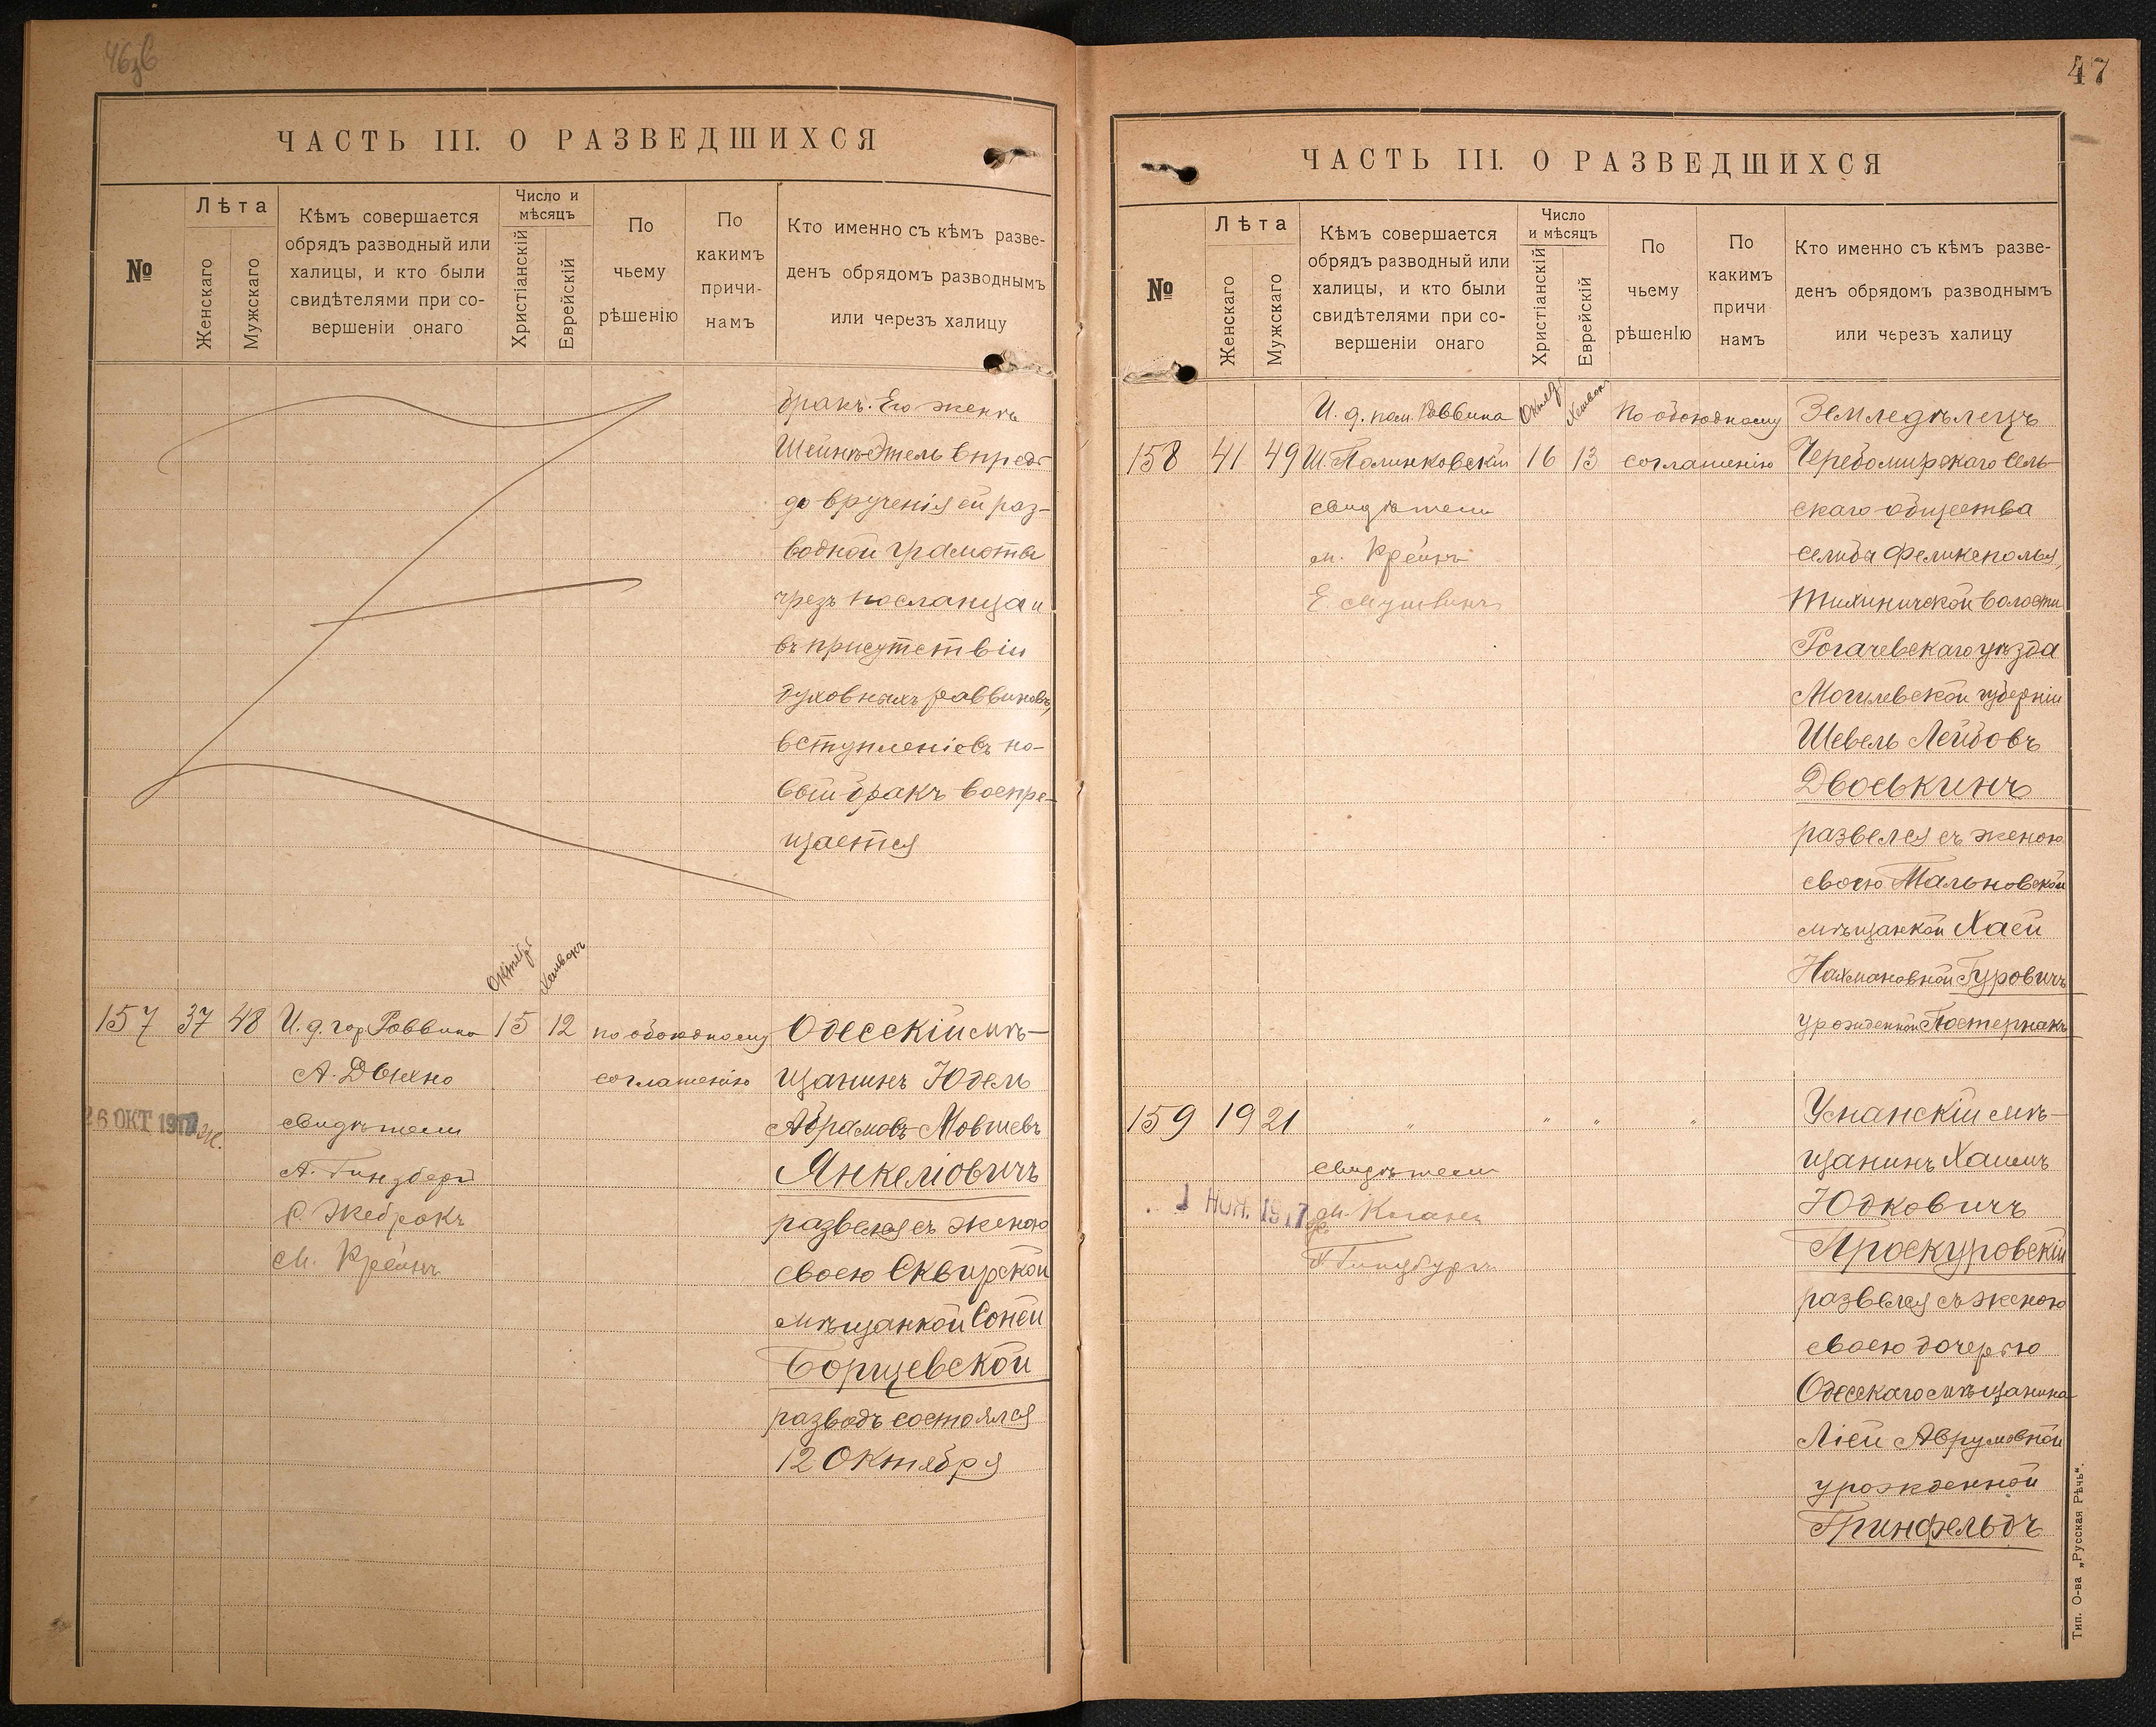 47
ЧАСТЬ III. О РАЗВЕДШИХСЯ
№
Лѣта
Женскаго
Мужскаго
Кѣмъ совершается
обрядъ разводный или
халицы, и кто были
свидѣтелями при со-
вершеніи онаго
Число и
мѣсяцъ
Христіанскій
Еврейскій
По
чьему
рѣшенію
По
какимъ
причи-
намъ
Кто именно съ кѣмъ разве-
денъ обрядомъ разводнымъ
или черезъ халицу
бракъ. Его женѣ
Шейнѣ-Этель впредь
до врученія ей раз-
водной грамоты
чрезъ посланца и
въ присутствіи
духовныхъ раввиновъ,
вступленіе въ но-
вый бракъ воспре-
щается
Октябр
Хешвонъ
157 37 48 И. д. гор. Раввина 15 12 по обоюдному Одесскій мѣ-
А. Дыхно соглашенію щанинъ Юдель
26 ОКТ 1917 свидѣтели Абрамовъ-Мовшевъ
А. Гинзберг Янкеліовичъ
С. Жебракъ развелся съ женою
М. Крейнъ своею Сквирской
мѣщанкой Соней
Борщевской
разводъ состоялся
12 Октября
ЧАСТЬ III. О РАЗВЕДШИХСЯ
№
Лѣта
Женскаго
Мужскаго
Кѣмъ совершается
обрядъ разводный или
халицы, и кто были
свидѣтелями при со-
вершеніи онаго
Число
и мѣсяцъ
Христіанскій
Еврейскій
По
чьему
рѣшенію
По
какимъ
причи
намъ
Кто именно съ кѣмъ разве-
денъ обрядомъ разводнымъ
или черезъ халицу
И. д. пом. Раввина Октяб Хешвон По обоюдному Земледѣлецъ
158 41 49 Ш. Полинковскій 16 13 соглашенію Черебомирскаго Сель-
свидѣтели скаго общества
М. Крейнъ селиба Феликсполья,
Е. Тихиничской волости
Рогачевскаго уѣзда
Могилевской губерніи
Шевель Лейбовъ
Двоскинъ
развелся съ женою
своею Тальновской
мѣщанкой Хаей
Нахмановной Гуровичъ
урожденной Постернакъ
159 19 21 " " " " Уманскій мѣ-
свидѣтели щанинъ Хаимъ
1 НОЯ. 1917 М. Коганъ Юдковичъ
Гинзбургъ Проскуровскій
развелся съ женою
своею дочерью
Одесскаго мѣщанина
Ліей Аврумовной
урожденной
Гринфельдъ
Тип. О-ва „Русская Рѣчь".